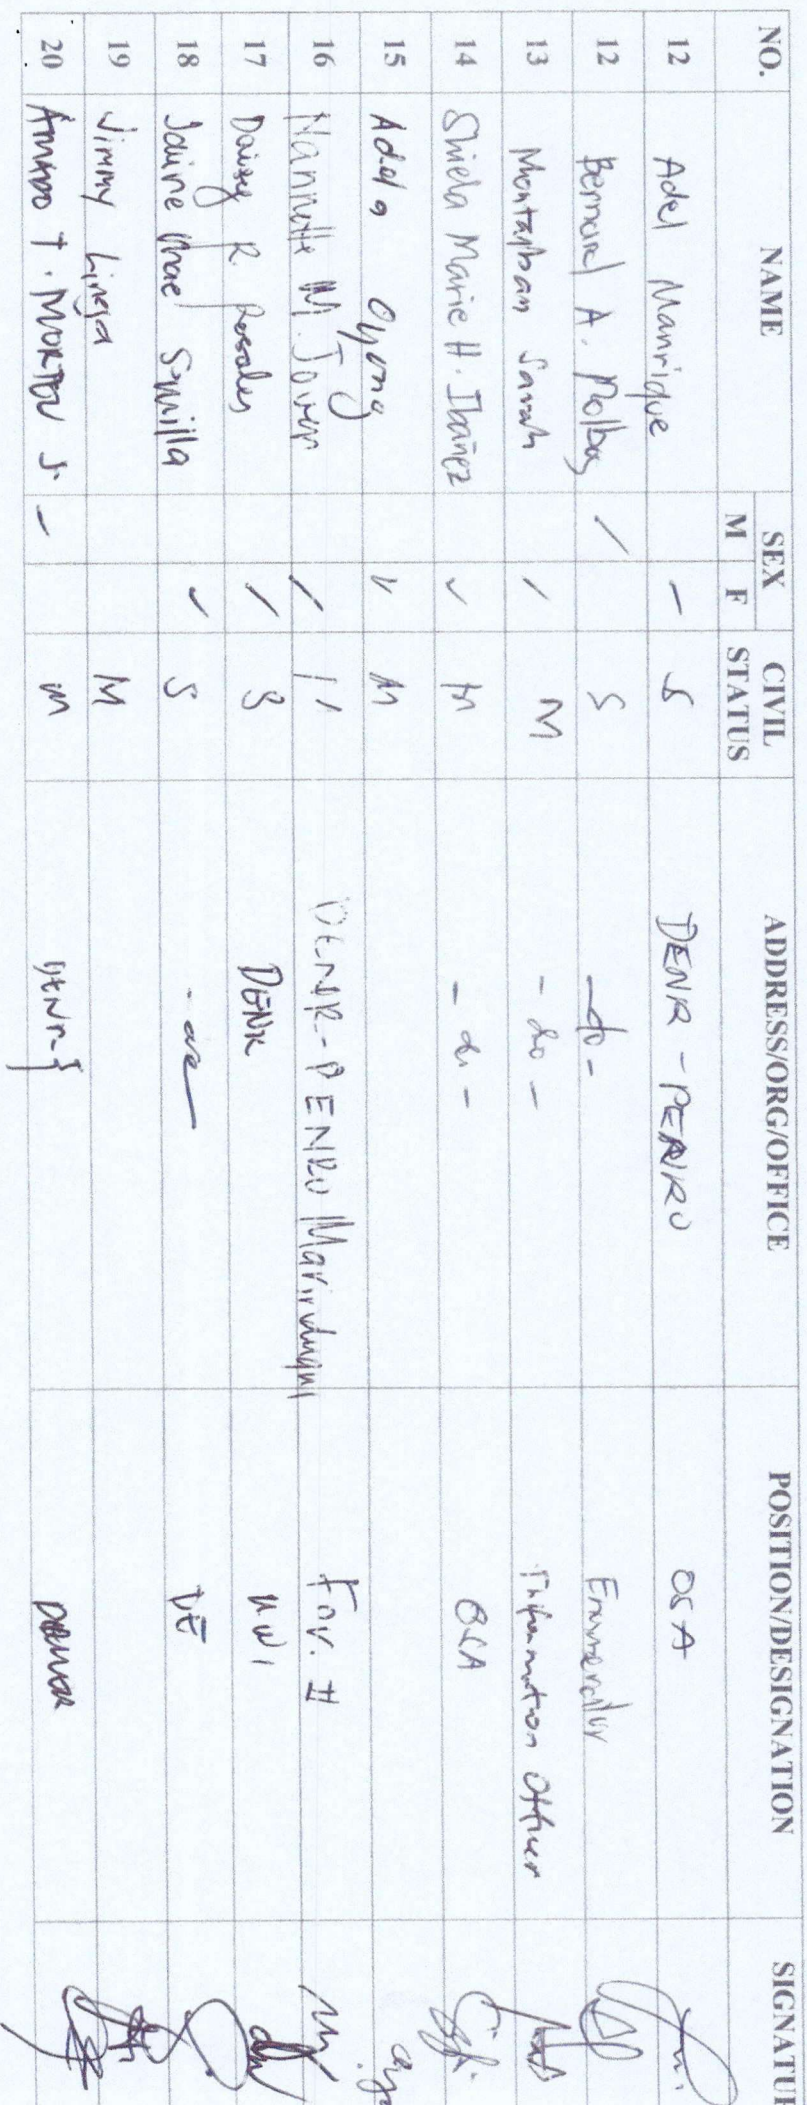 NO. NAME SEX M F CIVIL STATUS ADDRESS/ORG/OFFICE POSITION/DESIGNATION SIGNATUR
12 Adel Manrique – S DENR - PENRO OSA
12 Bernard A. Molbog / S - do - Enumerator
13 Montalban Sarah / M - do - Information Officer
14 Shiela Marie H. Ibañez ✓ M - do - OSA
15 Adela Oyong ✓ M
16 Nannette M. Jover / DENR-PENRO Marinduque Inv. II
17 Daisy R. Rosales / S DENR
18 Mae ✓ S DE
19 Jimmy M
20 Amado T. – M DENR